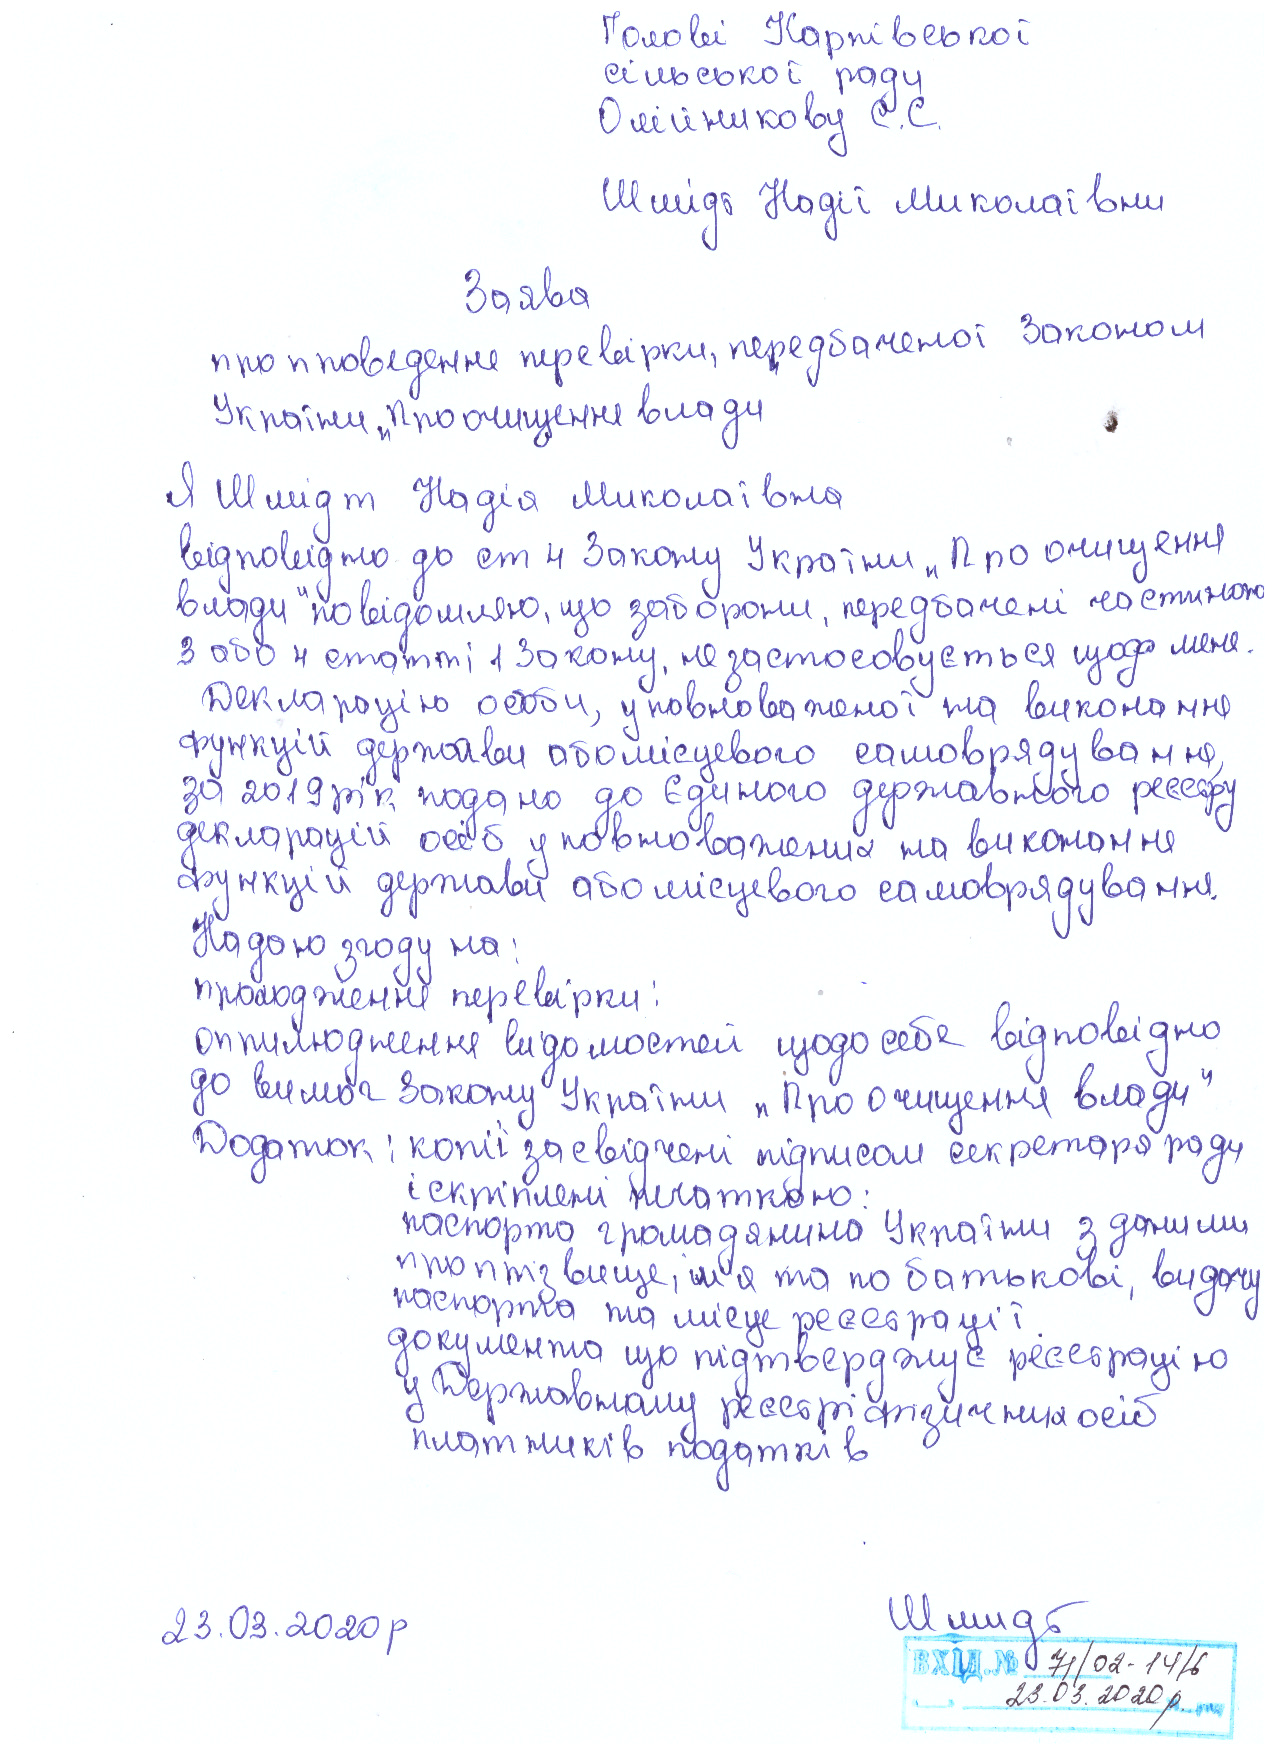 Голові Карпівської
сільської ради
Олійникову С.С.
Шмідт Надії Миколаївни
Заява
про проведення перевірки, передбаченої Законом
України „Про очищення влади
Я Шмідт Надія Миколаївна
відповідно до ст 4 Закону України „Про очищення
влади" повідомляю, що заборони, передбачені частиною
3 або 4 статті 1 Закону, не застосовується щодо мене.
Декларацію особи, уповноваженої на виконання
функцій держави або місцевого самоврядування,
за 2019 рік подано до Єдиного державного реєстру
декларацій осіб уповноважених на виконання
функцій держави або місцевого самоврядування.
Надаю згоду на:
проходження перевірки:
оприлюднення відомостей щодо себе відповідно
до вимог Закону України „Про очищення влади"
Додаток: копії засвідчені підписом секретаря ради
і скріплені печаткою:
паспорта громадянина України з даними
про прізвище, ім'я та по батькові, видачу
паспорта та місце реєстрації
документа що підтверджує реєстрацію
у Державному реєстрі фізичних осіб
платників податків
23.03.2020р
Шмидт
ВХІД.№ 71/02-14/6
23.03.2020р.